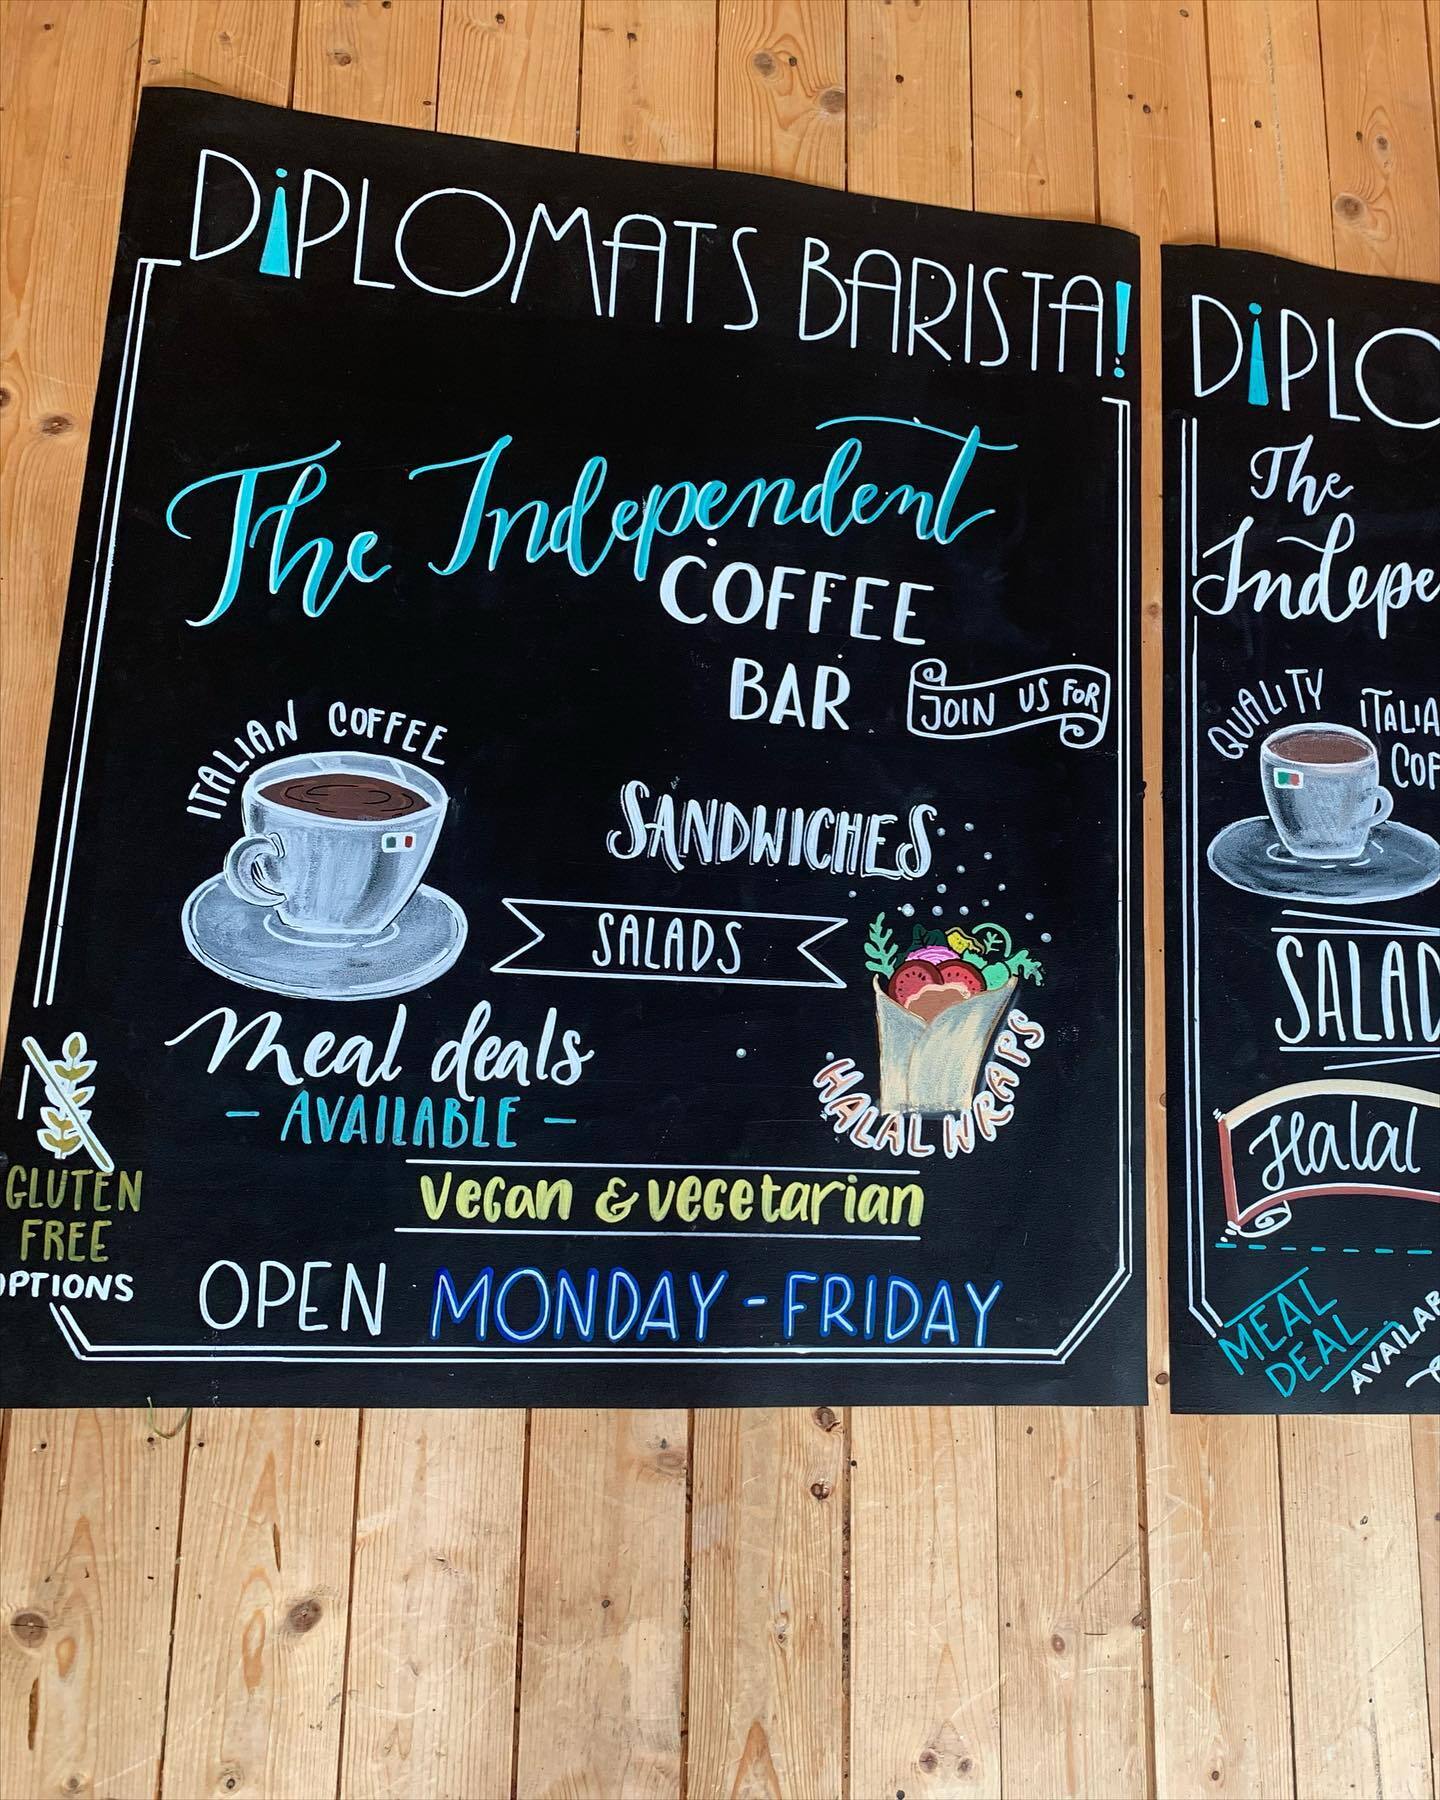 DiPLOMATS BARISTA!
The Independent
COFFEE
BAR
JOIN US FOR
ITALIAN COFFEE
SANDWICHES
SALADS
HALAL WRAPS
Meal deals
- AVAILABLE -
GLUTEN
FREE
OPTIONS
VEGAN & VEGETARIAN
OPEN MONDAY - FRIDAY
DiPLO
The
Indepe
QUALITY
ITALIA
COF
SALAD
Halal
MEAL
DEAL
AVAILAB